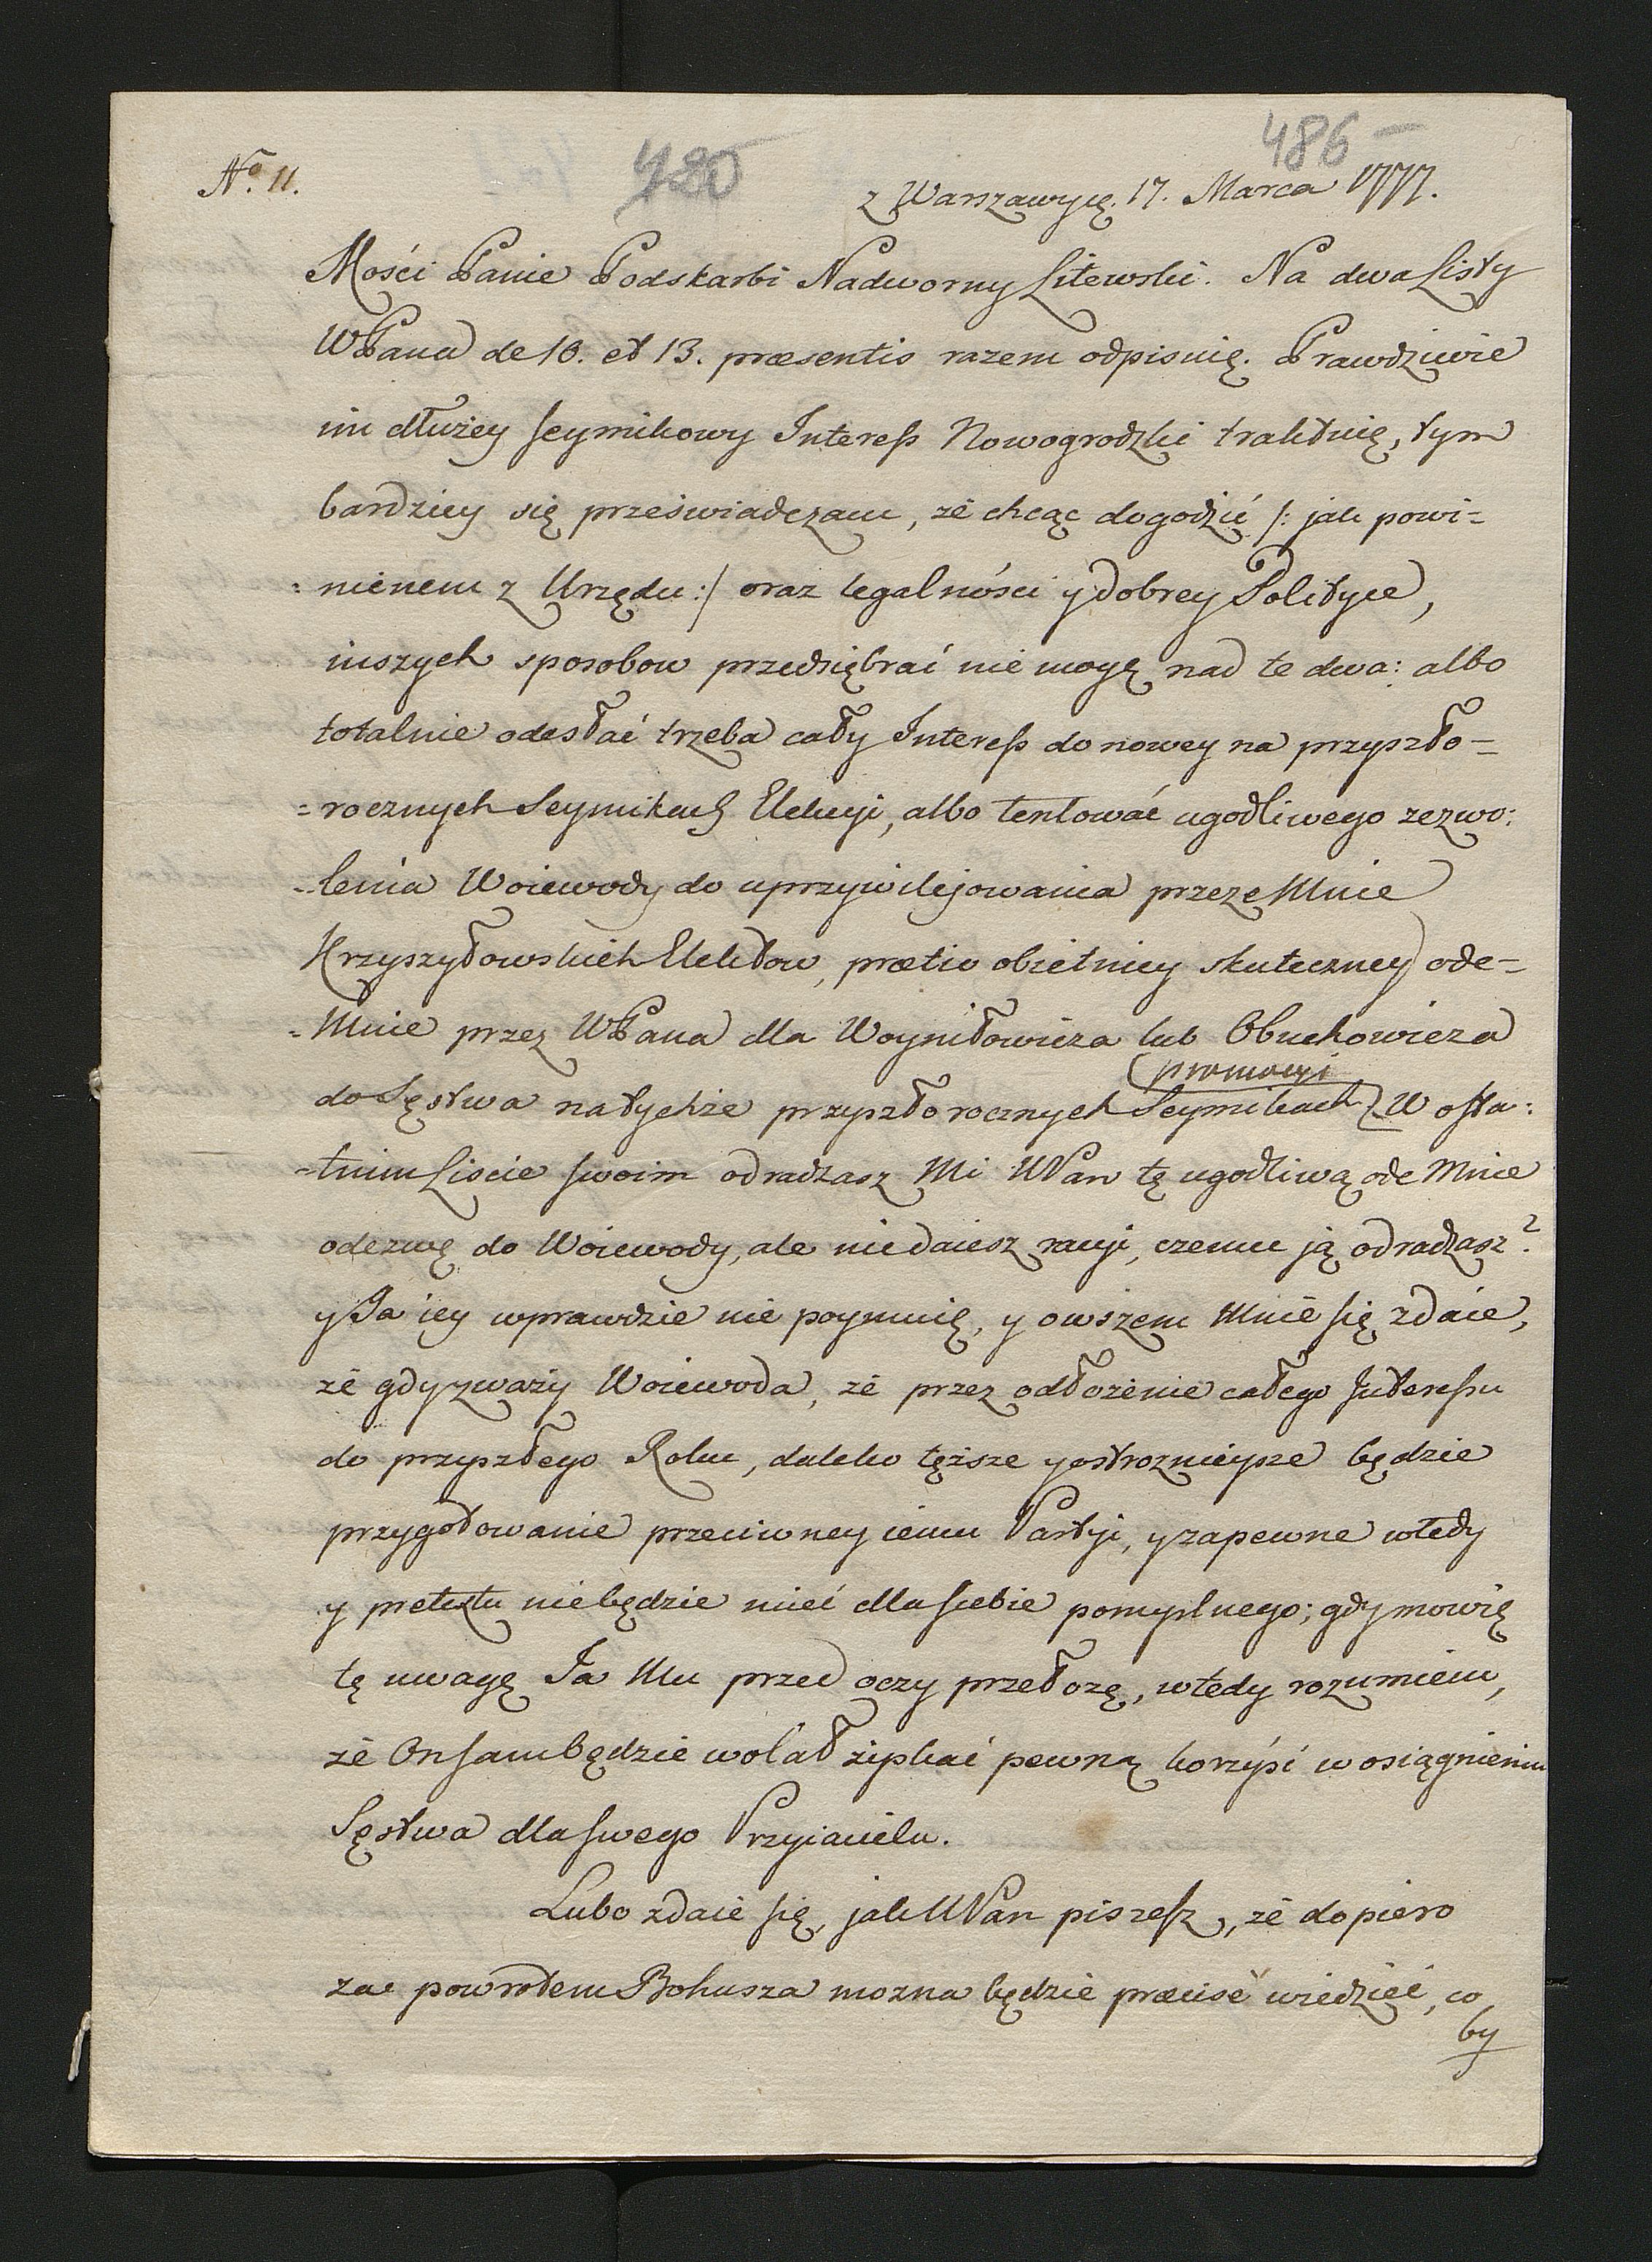 486
N.º 11.
420
z Warszawy
17. Marca 1777.
Mości Panie Podskarbi Nadworny Litewski. Na dwa Listy
WPana de 10. et 13. præsentis razem odpisuię. Prawdziwie
im dłużey seymikowy Interess Nowogrodzki traktuię, tym
bardziey się przeświadczam, że chcąc dogodzić /: jak powi=
=nienem z Urzędu :/ oraz legalności y dobrey Polityce,
inszych sposobow przedsiębrać nie mogę nad te dwa: albo
totalnie odesłać trzeba cały Interess do nowey na przyszło=
=rocznych Seymikach Elekcyi, albo tentować ugodliwego zezwo:
=lenia Woiewody do uprzywilejowania przeze Mnie
Krzyszyłowskich Elektow, prætio obietnicy skuteczney ode=
=Mnie przez WPana dla Woyniłowicza lub Obuchowicza
promocyi
do Sęstwa na tychże przyszłorocznych Seymikach. W osta:
=tnim Liscie swoim odradzasz Mi WPan tę ugodliwą ode Mnie
odezwę do Woiewody, ale nie daiesz racyi, czemu ją odradzasz?
y Ja iey wprawdzie nie poymuię, y owszem Mnie się zdaie,
że gdy zważy Woiewoda, że przez odłożenie całego Interessu
do przyszłego Roku, daleko tęższe y ostrożnieysze będzie
przygotowanie przeciwney iemu Partyi, y zapewne wtedy
y pretextu nie będzie mieć dla siebie pomyslnego; gdy mowię
tę uwagę Ja Mu przed oczy przełożę, wtedy rozumiem,
że On sam będzie wolał zyskać pewną korzyść w osiągnieniu
Sęstwa dla swego Przyiaciela.
Lubo zdaie się, jak WPan piszesz, że dopiero
za powrotem Bohusza mozna będzie præcisè wiedzieć, co
by